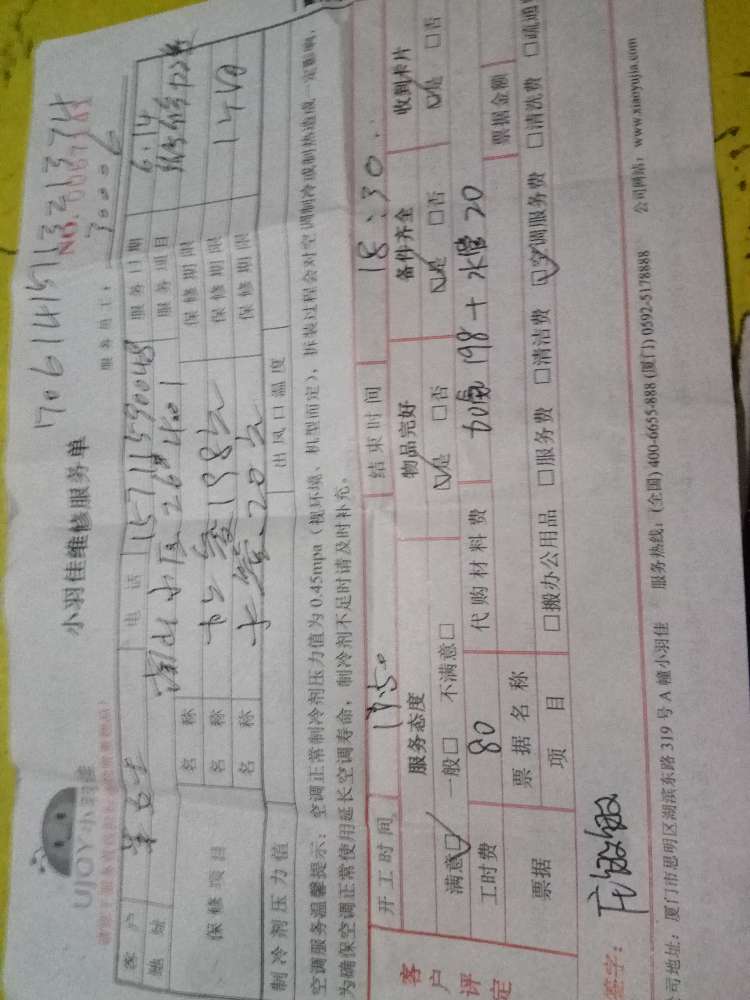 1706141511321374
小羽佳维修服务单
UJOY小羽佳
NO.
服务员工: 30006
客户 电话 15711590048 服务日期 6.14
地址 260401 服务项目
保修项目 名称 保修期限
名称 198元 保修期限 1个月
名称 水管20元 保修期限
制冷剂压力值 出风口温度
空调服务温馨提示: 空调正常制冷剂压力值为0.45mpa (视环境、机型而定), 拆装过程会对空调制冷或制热造成一定影响,
为确保空调正常使用延长空调寿命, 制冷剂不足时请及时补充。
开工时间 17:50 结束时间 18:30.
客户评定
服务态度 物品完好 备件齐全 收到卡片
满意☑ 一般□ 不满意□ ☑是 □否 ☑是 □否 ☑是 □否
工时费 80 代购材料费 加氟198+水管20
票据 票据名称 票据金额
项目 □搬办公用品 □服务费 □清洁费 ☑空调服务费 □清洗费 □疏通
签字:
司地址: 厦门市思明区湖滨东路319号A幢小羽佳 服务热线: (全国) 400-6655-888 (厦门) 0592-5178888 公司网站: www.xiaoyujia.com